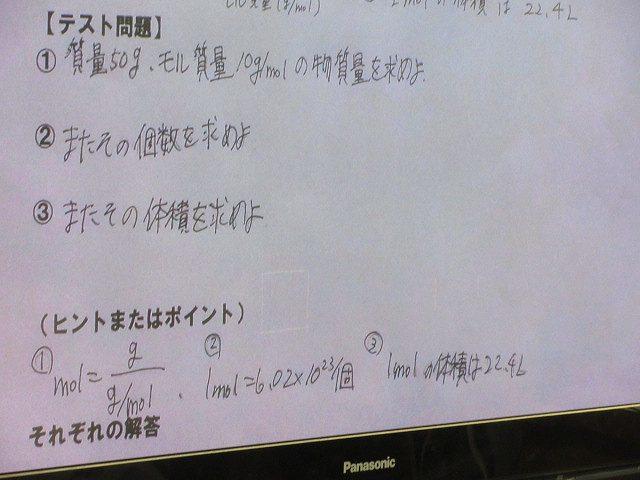 1molの体積は 22.4L
【テスト問題】
① 質量50g、モル質量10g/molの物質量を求めよ.
② またその個数を求めよ
③ またその体積を求めよ
(ヒントまたはポイント)
① mol= g/g/mol 、 ② 1mol=6.02×10²³個 ③ 1molの体積は22.4L
それぞれの解答
Panasonic